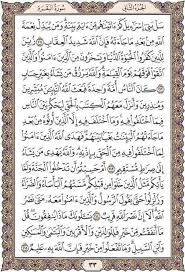 الجزء الثاني سورة البقرة
سل بني إسرءيل كم ءاتينهم من ءاية بينة ومن يبدل نعمة
الله من بعد ما جاءته فإن الله شديد العقاب ٢١١ زين للذين
كفروا الحيوة الدنيا ويسخرون من الذين ءامنوا والذين
اتقوا فوقهم يوم القيمة والله يرزق من يشاء بغير حساب ٢١٢
كان الناس أمة وحدة فبعث الله النبين مبشرين
ومنذرين وأنزل معهم الكتب بالحق ليحكم بين الناس
فيما اختلفوا فيه وما اختلف فيه إلا الذين أوتوه من بعد
ما جاءتهم البينت بغيا بينهم فهدى الله الذين ءامنوا
لما اختلفوا فيه من الحق بإذنه والله يهدي من يشاء
إلى صرط مستقيم ٢١٣ أم حسبتم أن تدخلوا الجنة ولما
يأتكم مثل الذين خلوا من قبلكم مستهم البأساء والضراء
وزلزلوا حتى يقول الرسول والذين ءامنوا معه متى نصر
الله ألا إن نصر الله قريب ٢١٤ يسءلونك ماذا ينفقون قل ما
أنفقتم من خير فللولدين والأقربين واليتمى والمسكين
وابن السبيل وما تفعلوا من خير فإن الله به عليم ٢١٥
٣٣